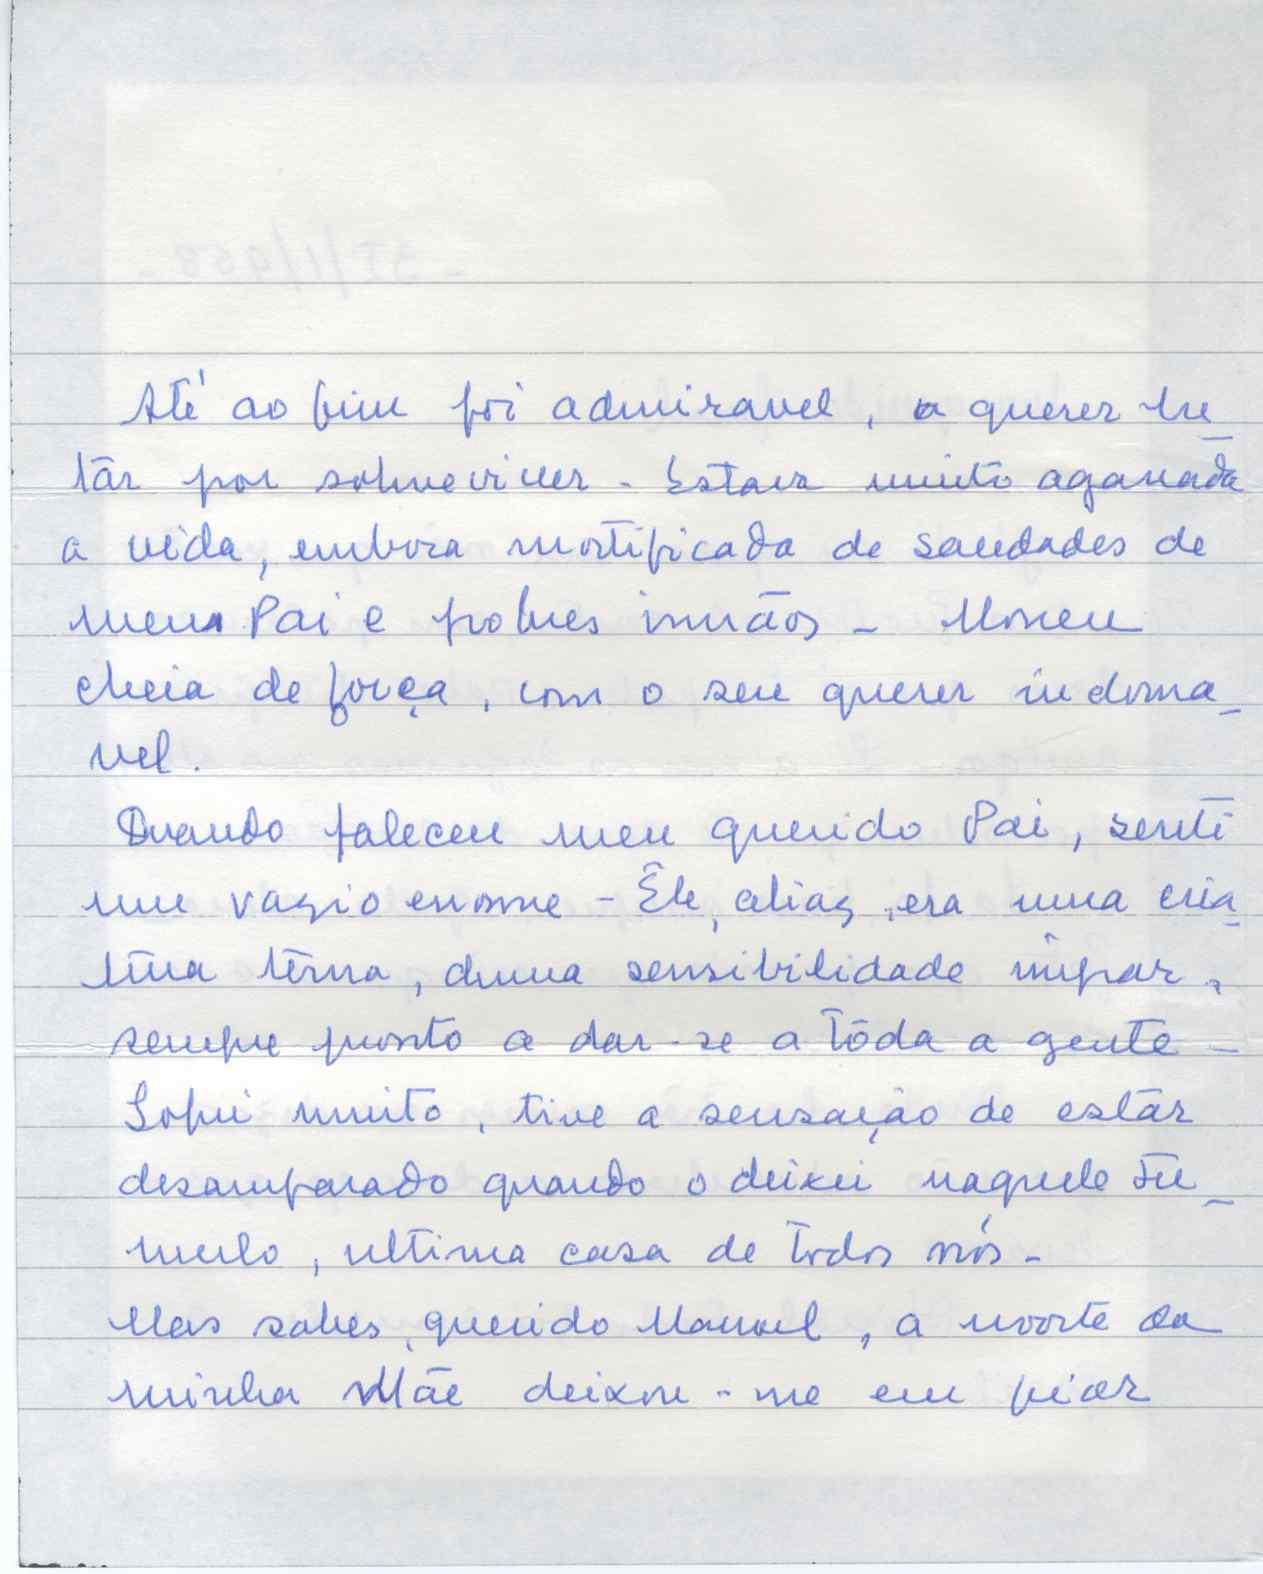 Até ao fim foi admiravel, a querer lu_
tar por sobreviver - Estava muito agarrada
a vida, embora mortificada de saudades de
meu Pai e pobres irmãos - Morreu
cheia de força, com o seu querer indoma_
vel.
Quando faleceu meu querido Pai, senti
um vazio enorme - Êle, alias, era uma cria_
tura terna, duma sensibilidade impar,
sempre pronto a dar-se a tôda a gente -
Sofri muito, tive a sensação de estar
desamparado quando o deixei naquele tu_
mulo, ultima casa de todos nós -
Mas sabes, querido Manuel, a morte da
minha Mãe deixou-me em pior